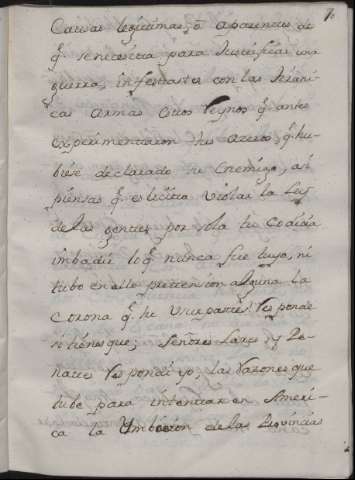 70
Causas legitimas, ò aparentes de
q.e se necesita para Justificar una
guerra, infestaste con las
cas armas otros Reynos q.e antes
experimentaron tus Azeros, q.e hu-
biese declarado tu Enemigo, asi
piensas q.e es licito violar la Ley
de las gentes por sola tu Codicia
imbadir lo q.e nunca fue tuyo, ni
tubo en ello pretension alguna la
Corona q.e tu Responde
si tienes que; Señores Lares y Pe-
nates Respondi yo, las Razones que
tube para intentar en Ameri-
ca la de las Provincias